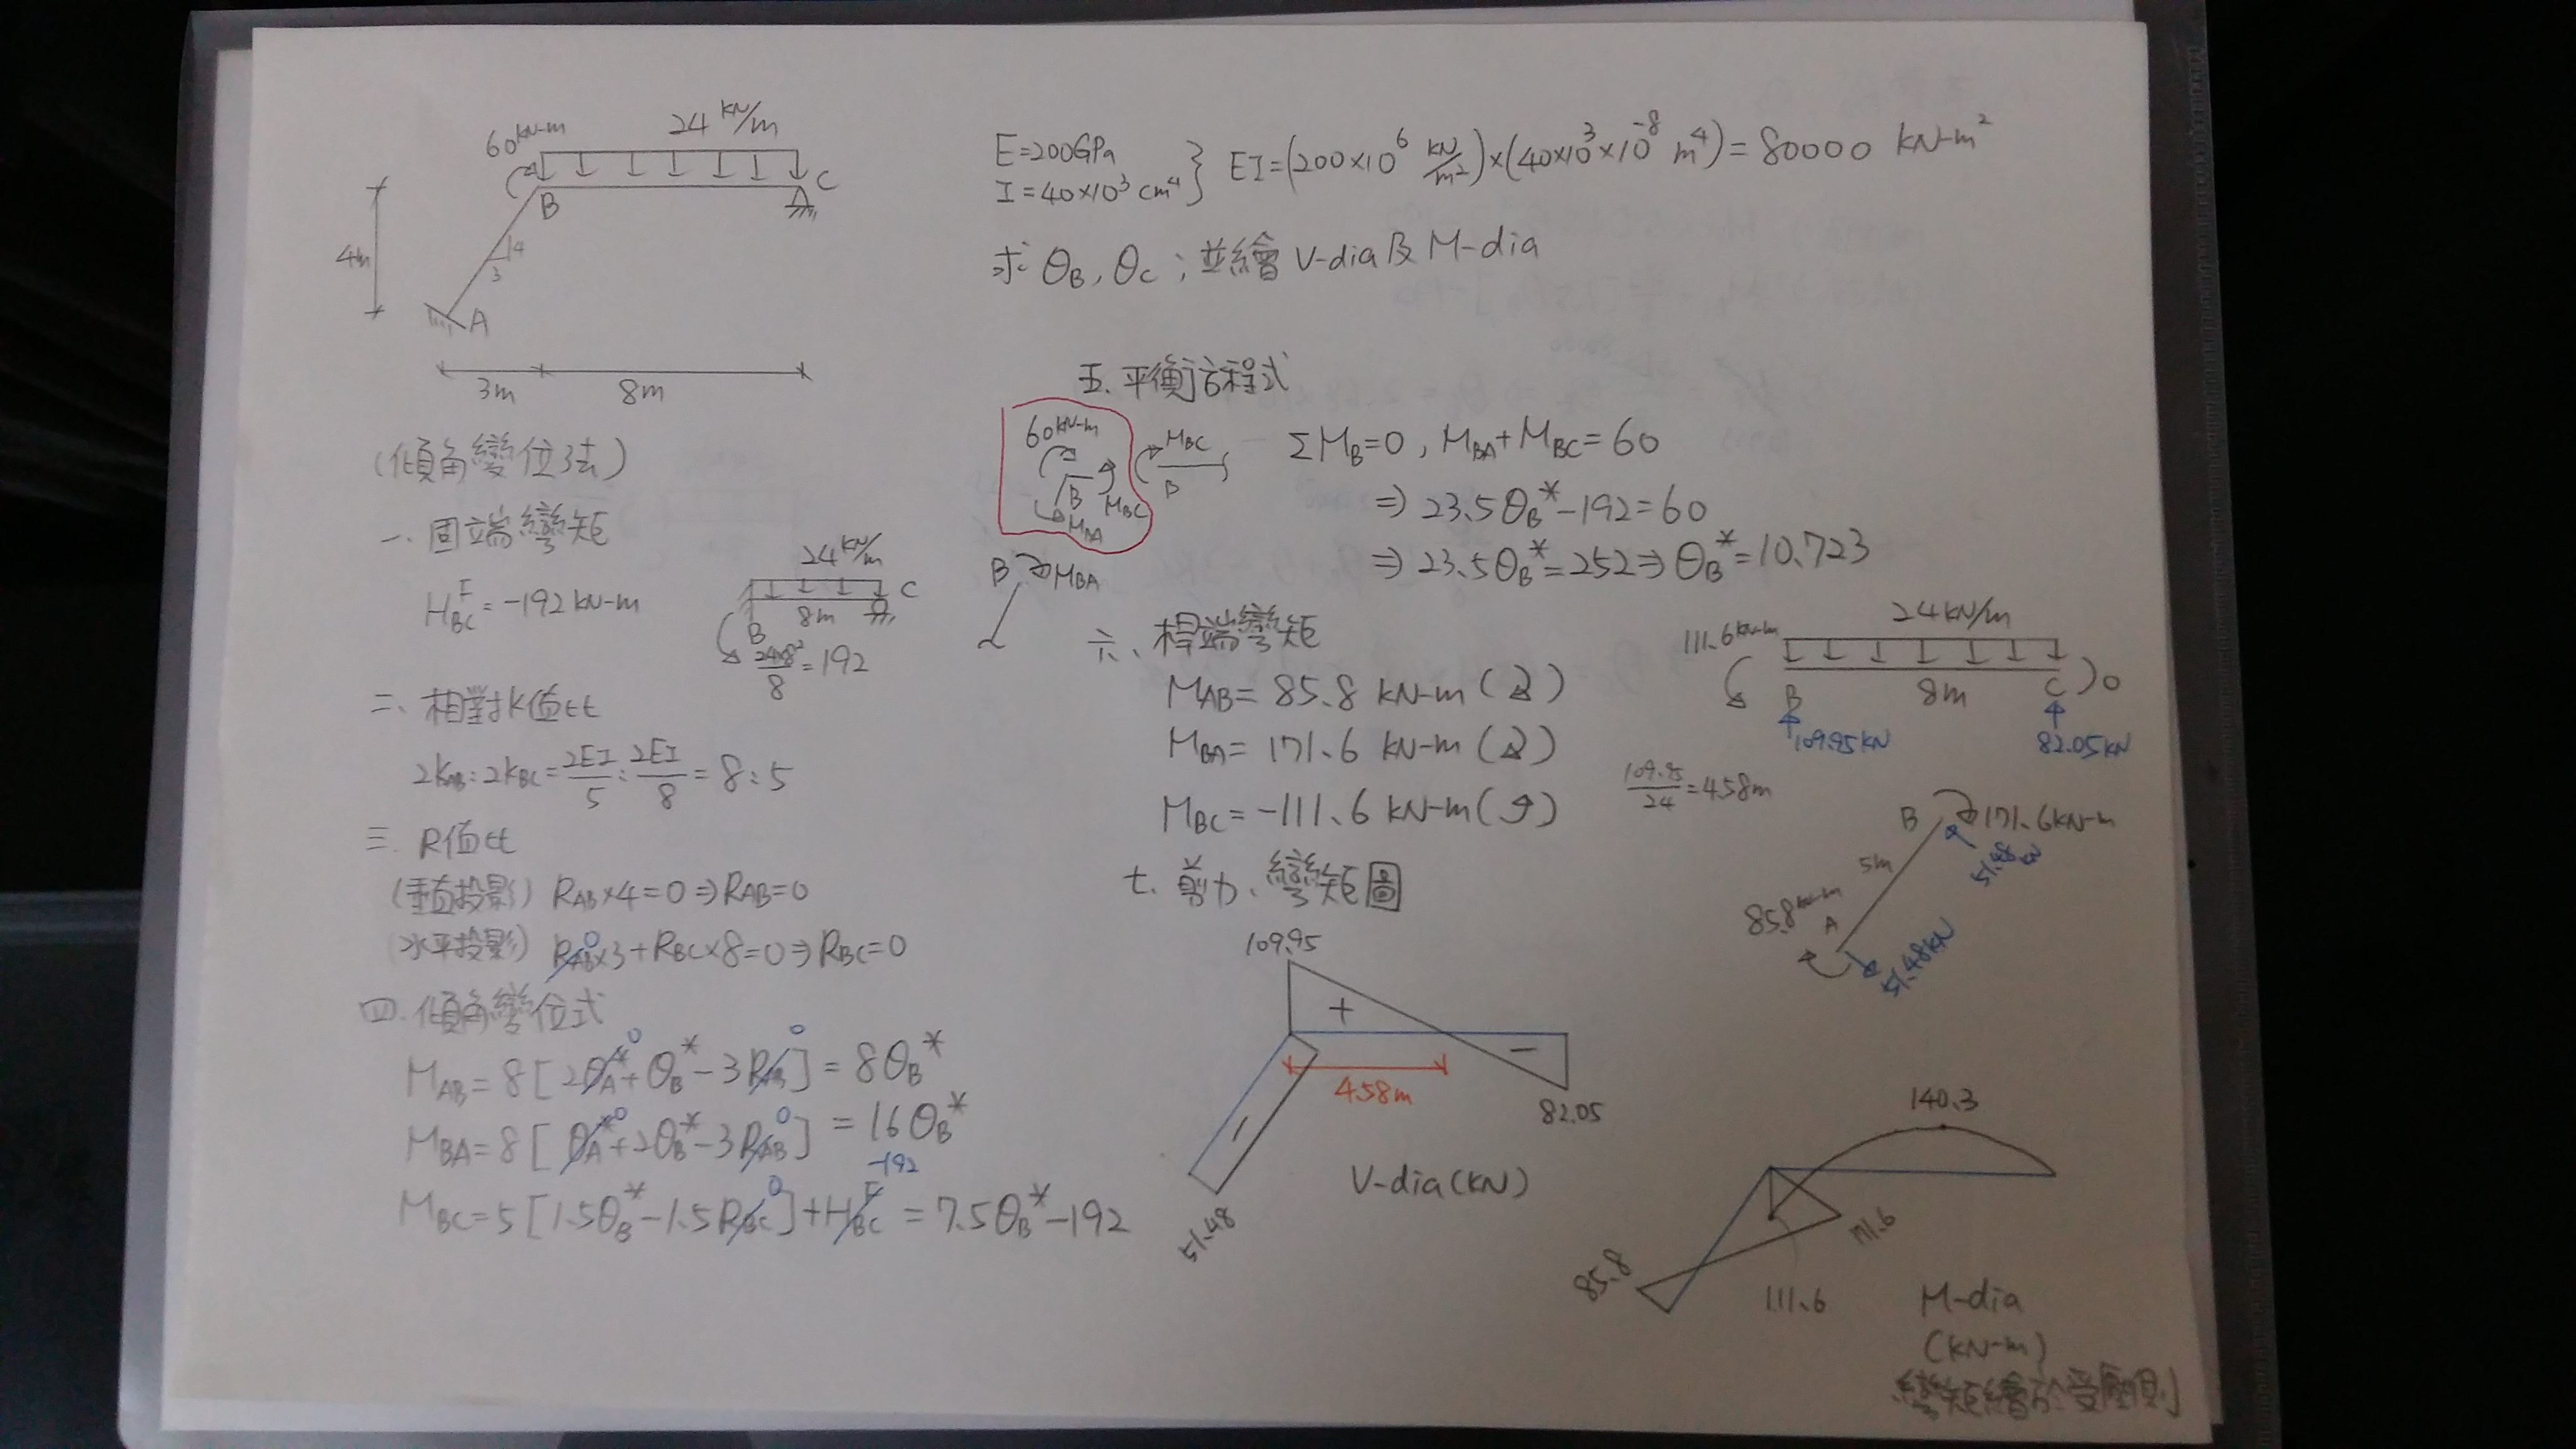 60 kN-m
24 kN/m
B
C
4m
4
3
A
3m
8m
E=200GPa
I=40×10³ cm⁴
EI=(200×10⁶ kN/m²)×(40×10³×10⁻⁸ m⁴)=80000 kN-m²
求 θB, θC ; 並繪 V-dia 及 M-dia
(傾角變位法)
一、固端彎矩
H^F_BC = -192 kN-m
24 kN/m
B
8m
C
24×8²/8 = 192
二、相對K值比
2K_AB : 2K_BC = 2EI/5 : 2EI/8 = 8:5
三. R值比
(垂直投影) R_AB×4=0 ⇒ R_AB=0
(水平投影) R_AB×3+R_BC×8=0 ⇒ R_BC=0
0
四. 傾角變位式
M_AB = 8[2θ_A*+θ_B*-3R_AB] = 8θ_B*
0 0
M_BA = 8[θ_A*+2θ_B*-3R_AB] = 16θ_B*
0 0
M_BC = 5[1.5θ_B*-1.5R_BC]+H^F_BC = 7.5θ_B*-192
0 -192
五. 平衡方程式
60 kN-m
B
M_BC
M_BA
M_BC
B
B M_BA
ΣM_B=0, M_BA+M_BC=60
⇒ 23.5θ_B*-192=60
⇒ 23.5θ_B*=252 ⇒ θ_B*=10.723
六、桿端彎矩
M_AB = 85.8 kN-m (↻)
M_BA = 171.6 kN-m (↻)
M_BC = -111.6 kN-m (↺)
111.6 kN-m
24 kN/m
B
8m
C
0
109.95 kN
82.05 kN
109.95/24 = 4.58m
B
171.6 kN-m
51.48 kN
5m
85.8 kN-m
A
51.48 kN
七. 剪力、彎矩圖
109.95
+
-
4.58m
82.05
-
51.48
V-dia (kN)
140.3
171.6
85.8
111.6
M-dia
(kN-m)
彎矩繪於受壓側